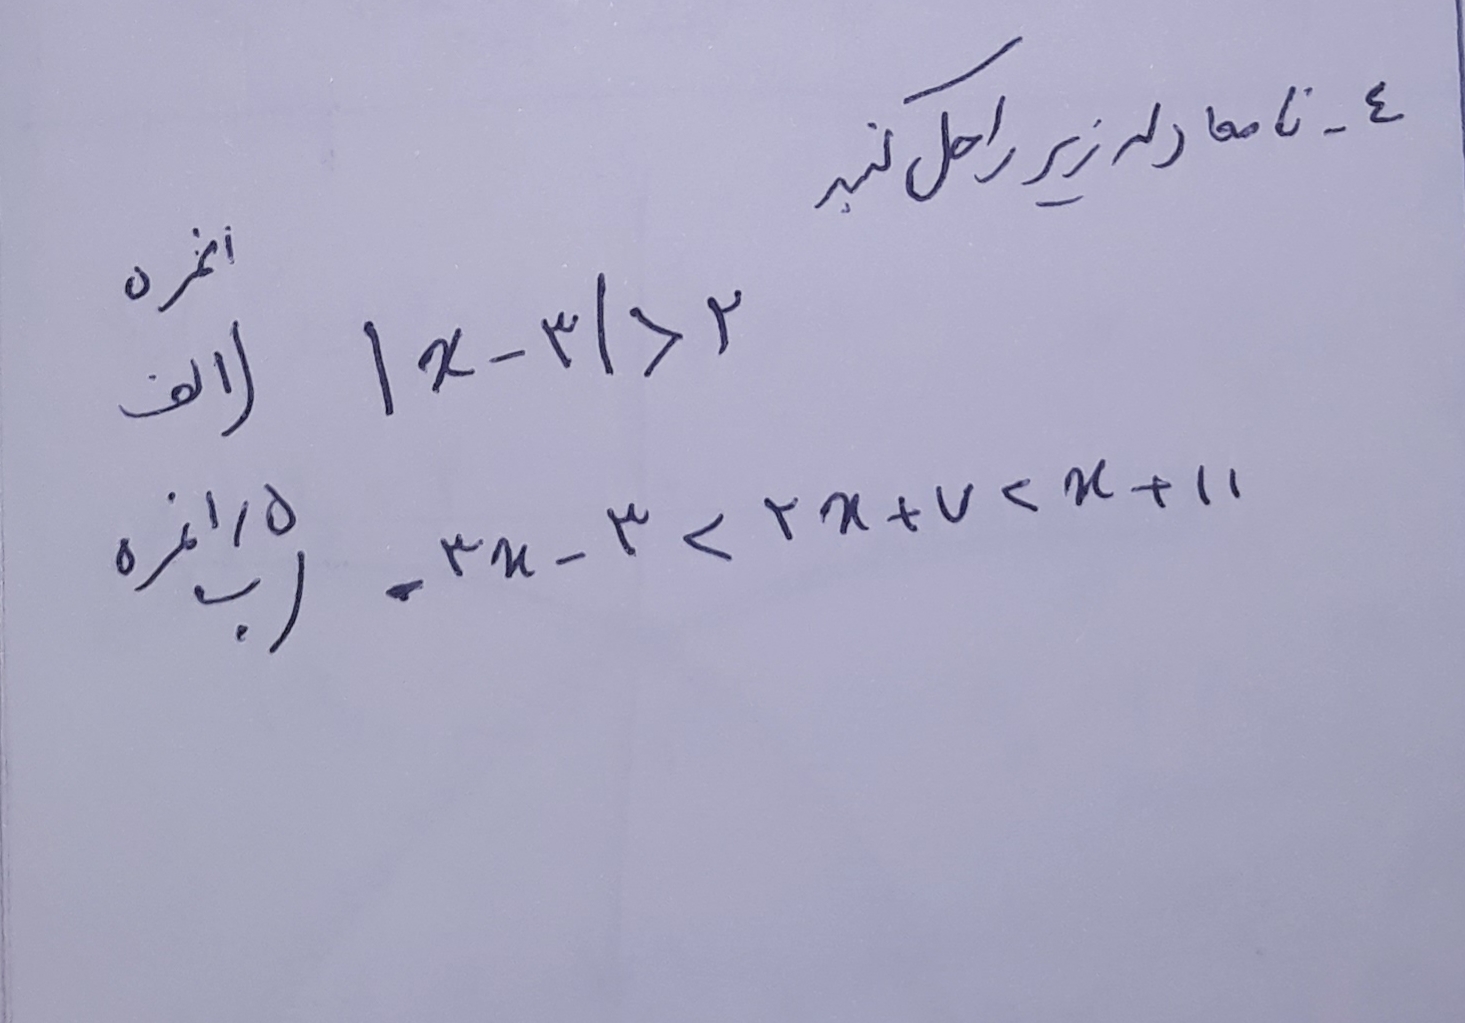 ٤ - نامعادله زیر را حل کنید
۱ نمره
الف) |x - ۳| > ۲
۱/۵ نمره
ب) -۳x - ۳ < ۲x + ۷ < x + ۱۱